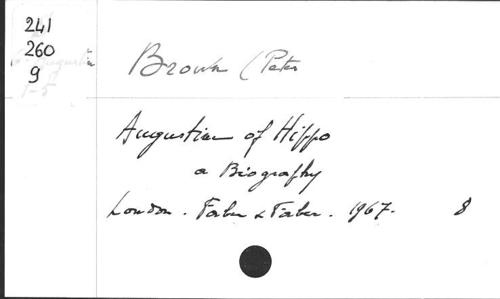 241
260
9
Augustin
1-5
Brown (Peter
Augustine of Hippo
a Biography
London. Faber & Faber. 1967. 8